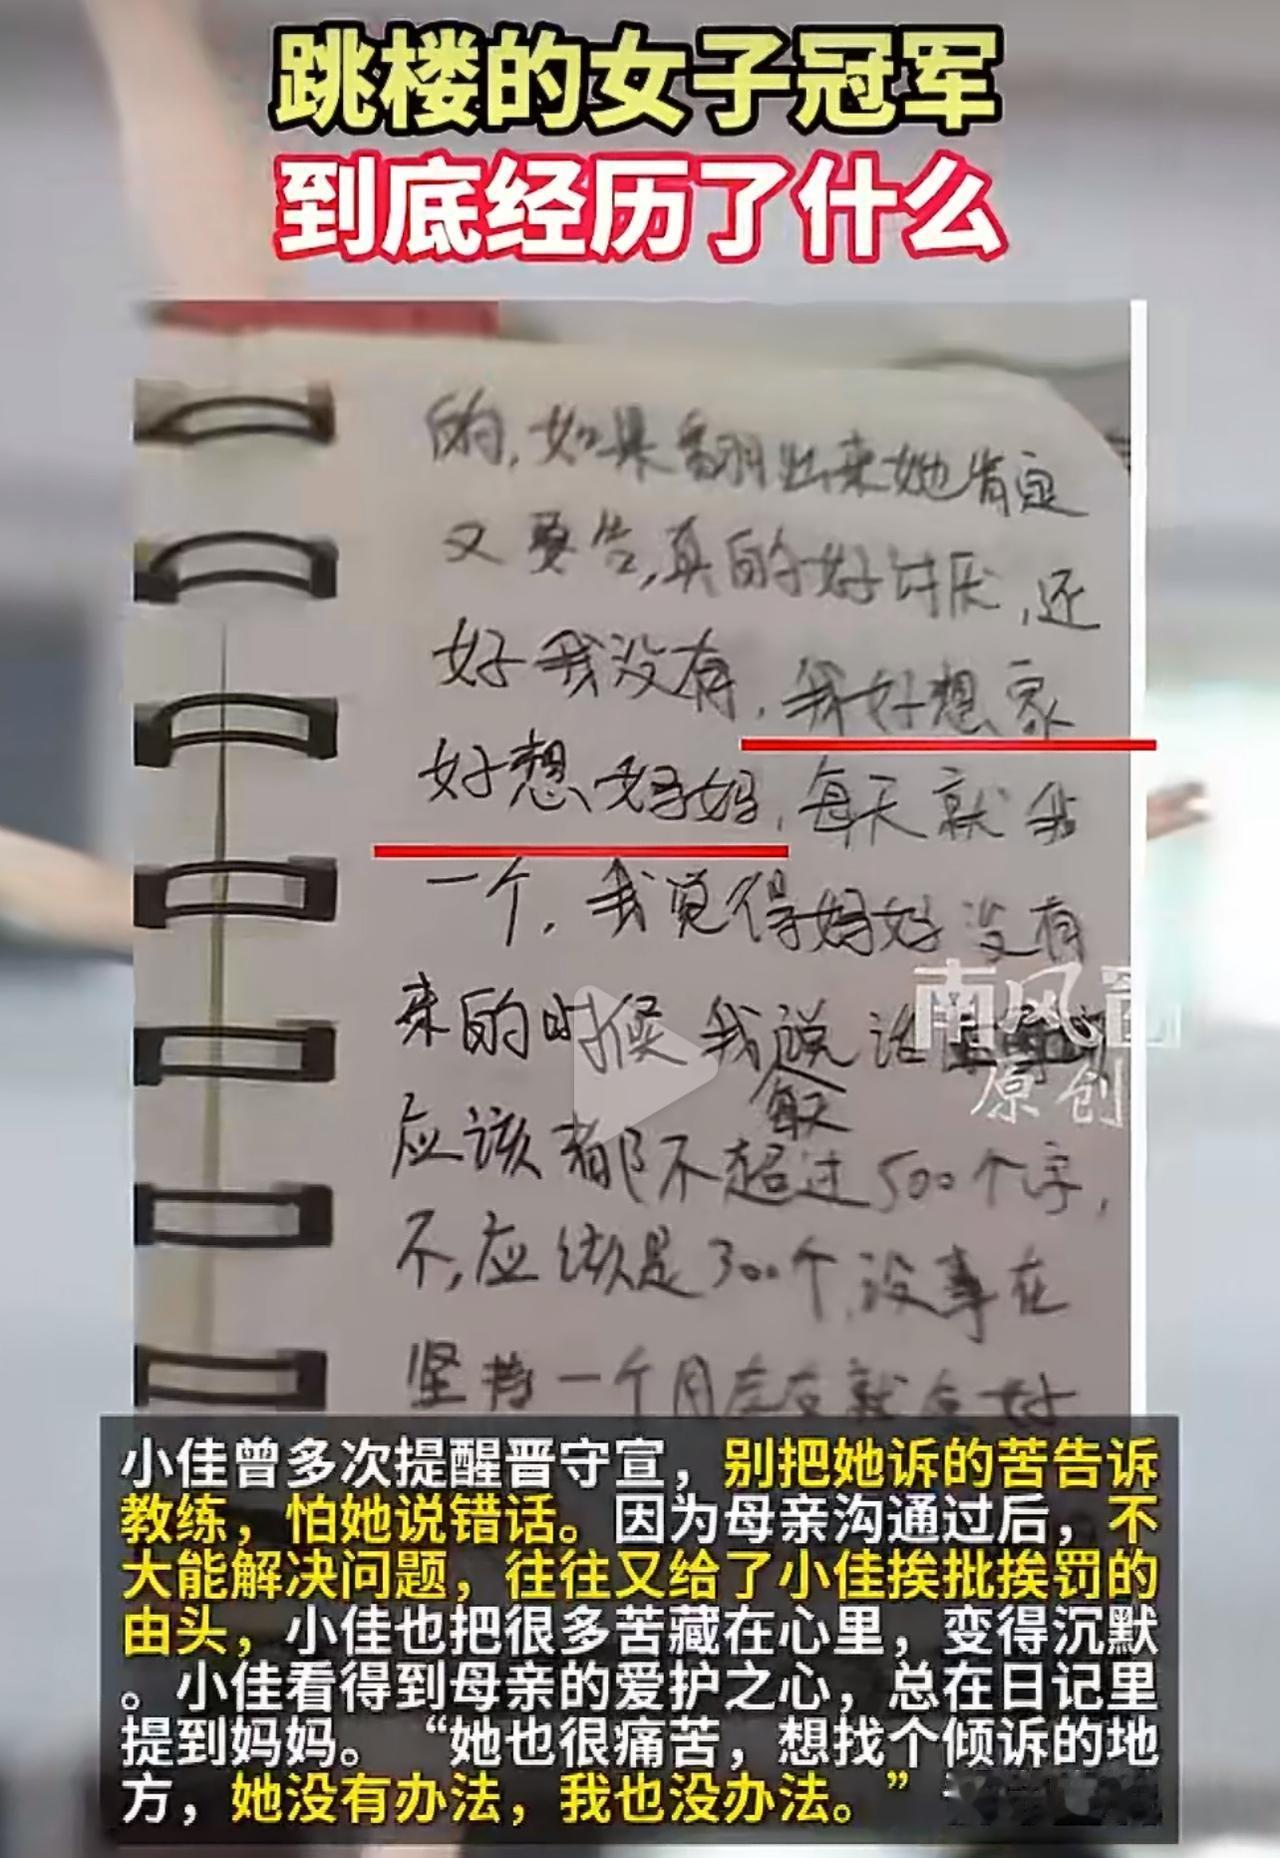 跳楼的女子冠军
到底经历了什么
的，如果翻出来她肯定
又要告，真的好讨厌，还
好我没有，我好想家
好想妈妈，每天就我
一个，我觉得妈妈没有
来的时候我说话
每天
应该都不超过500个字，
不，应该是300个，没事在
坚持一个月左右就会好
南风
原创
小佳曾多次提醒晋守宣，别把她诉的苦告诉
教练，怕她说错话。因为母亲沟通过后，不
大能解决问题，往往又给了小佳挨批挨罚的
由头，小佳也把很多苦藏在心里，变得沉默
。小佳看得到母亲的爱护之心，总在日记里
提到妈妈。“她也很痛苦，想找个倾诉的地
方，她没有办法，我也没办法。”